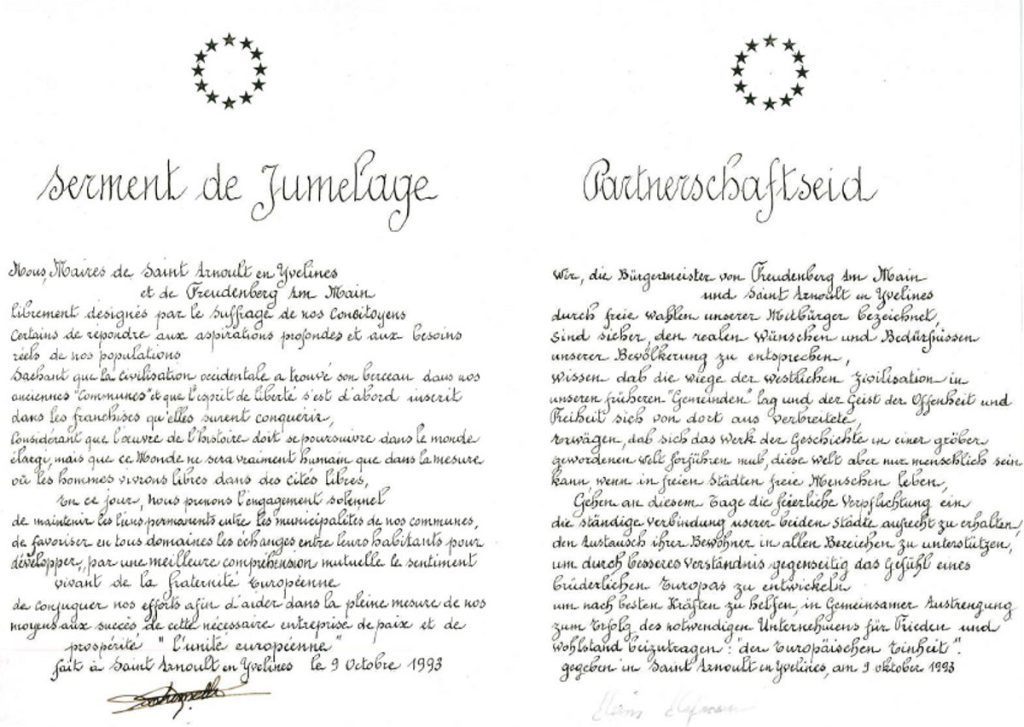 Serment de Jumelage
Nous, Maires de Saint Arnoult en Yvelines
et de Freudenberg Am Main
librement designés par le suffrage de nos Concitoyens
Certains de répondre aux aspirations profondes et aux besoins
réels de nos populations
Sachant que la civilisation occidentale a trouvé son berceau dans nos
anciennes "communes" et que l'esprit de liberté s'est d'abord inscrit
dans les franchises qu'elles surent conquérir,
Considérant que l'œuvre de l'histoire doit se poursuivre dans le monde
élargi, mais que ce Monde ne sera vraiment humain que dans la mesure
où les hommes vivrons libres dans des cités libres,
En ce jour, Nous prenons l'engagement solennel
de maintenir les liens permanents entre les municipalités de nos communes,
de favoriser en tous domaines les échanges entre leurs habitants pour
développer, par une meilleure compréhension mutuelle le sentiment
vivant de la fraternité Européenne
de conjuguer nos efforts afin d'aider dans la pleine mesure de nos
moyens aux succès de cette nécessaire entreprise de paix et de
prospérité "l'unité européenne"
fait à Saint Arnoult en Yvelines le 9 Octobre 1993
Partnerschaftseid
Wir, die Bürgermeister von Freudenberg Am Main
und Saint Arnoult en Yvelines
durch freie wahlen unserer Mitbürger bezeichnet,
Sind sicher, den realen Wünschen und Bedürfnissen
unserer Bevölkerung zu entsprechen,
Wissen dab die wiege der westlichen Zivilisation in
unseren früheren "Gemeinden" lag und der Geist der Offenheit und
Freiheit sich von dort aus verbreitete,
Erwägen, dab sich das Werk der Geschichte in einer gröber
gewordenen Welt forführen mub, diese Welt aber nur menschlich sein
kann wenn in freien Städten freie Menschen leben,
Gehen an diesem Tage die feierliche Verpflichtung ein
die ständige Verbindung userer beiden Städte aufrecht zu erhalten,
den Austausch ihrer Bewohner in allen Bereichen zu unterstützen,
um durch besseres Verständnis gegenseitig das Gefühl eines
brüderlichen Europas zu entwickeln
um nach besten Kräften zu helfen, in Gemeinsamer Anstrengung
zum Erfolg des notwendigen Unternehmens für Frieden und
Wohlstand beizutragen: "der Europäischen Einheit".
gegeben in Saint Arnoult en Yvelines, am 9 Oktober 1993